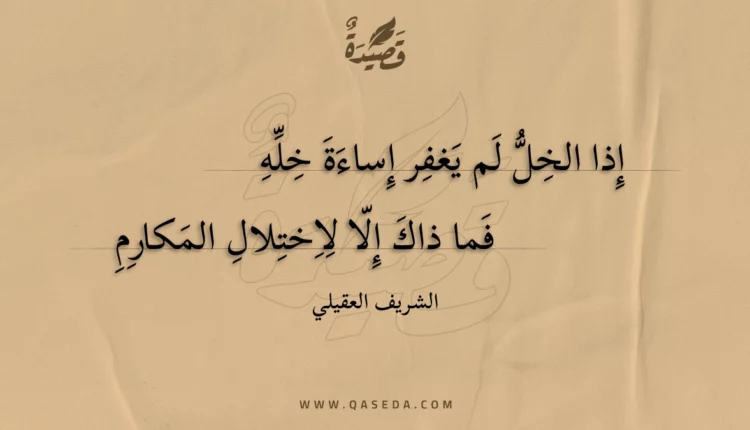 قَصِيْدَةٌ
إِذا الخِلُّ لَم يَغفِر إِساءَةَ خِلِّهِ
فَما ذاكَ إِلّا لِاِختِلالِ المَكارِمِ
الشريف العقيلي
WWW.QASEDA.COM